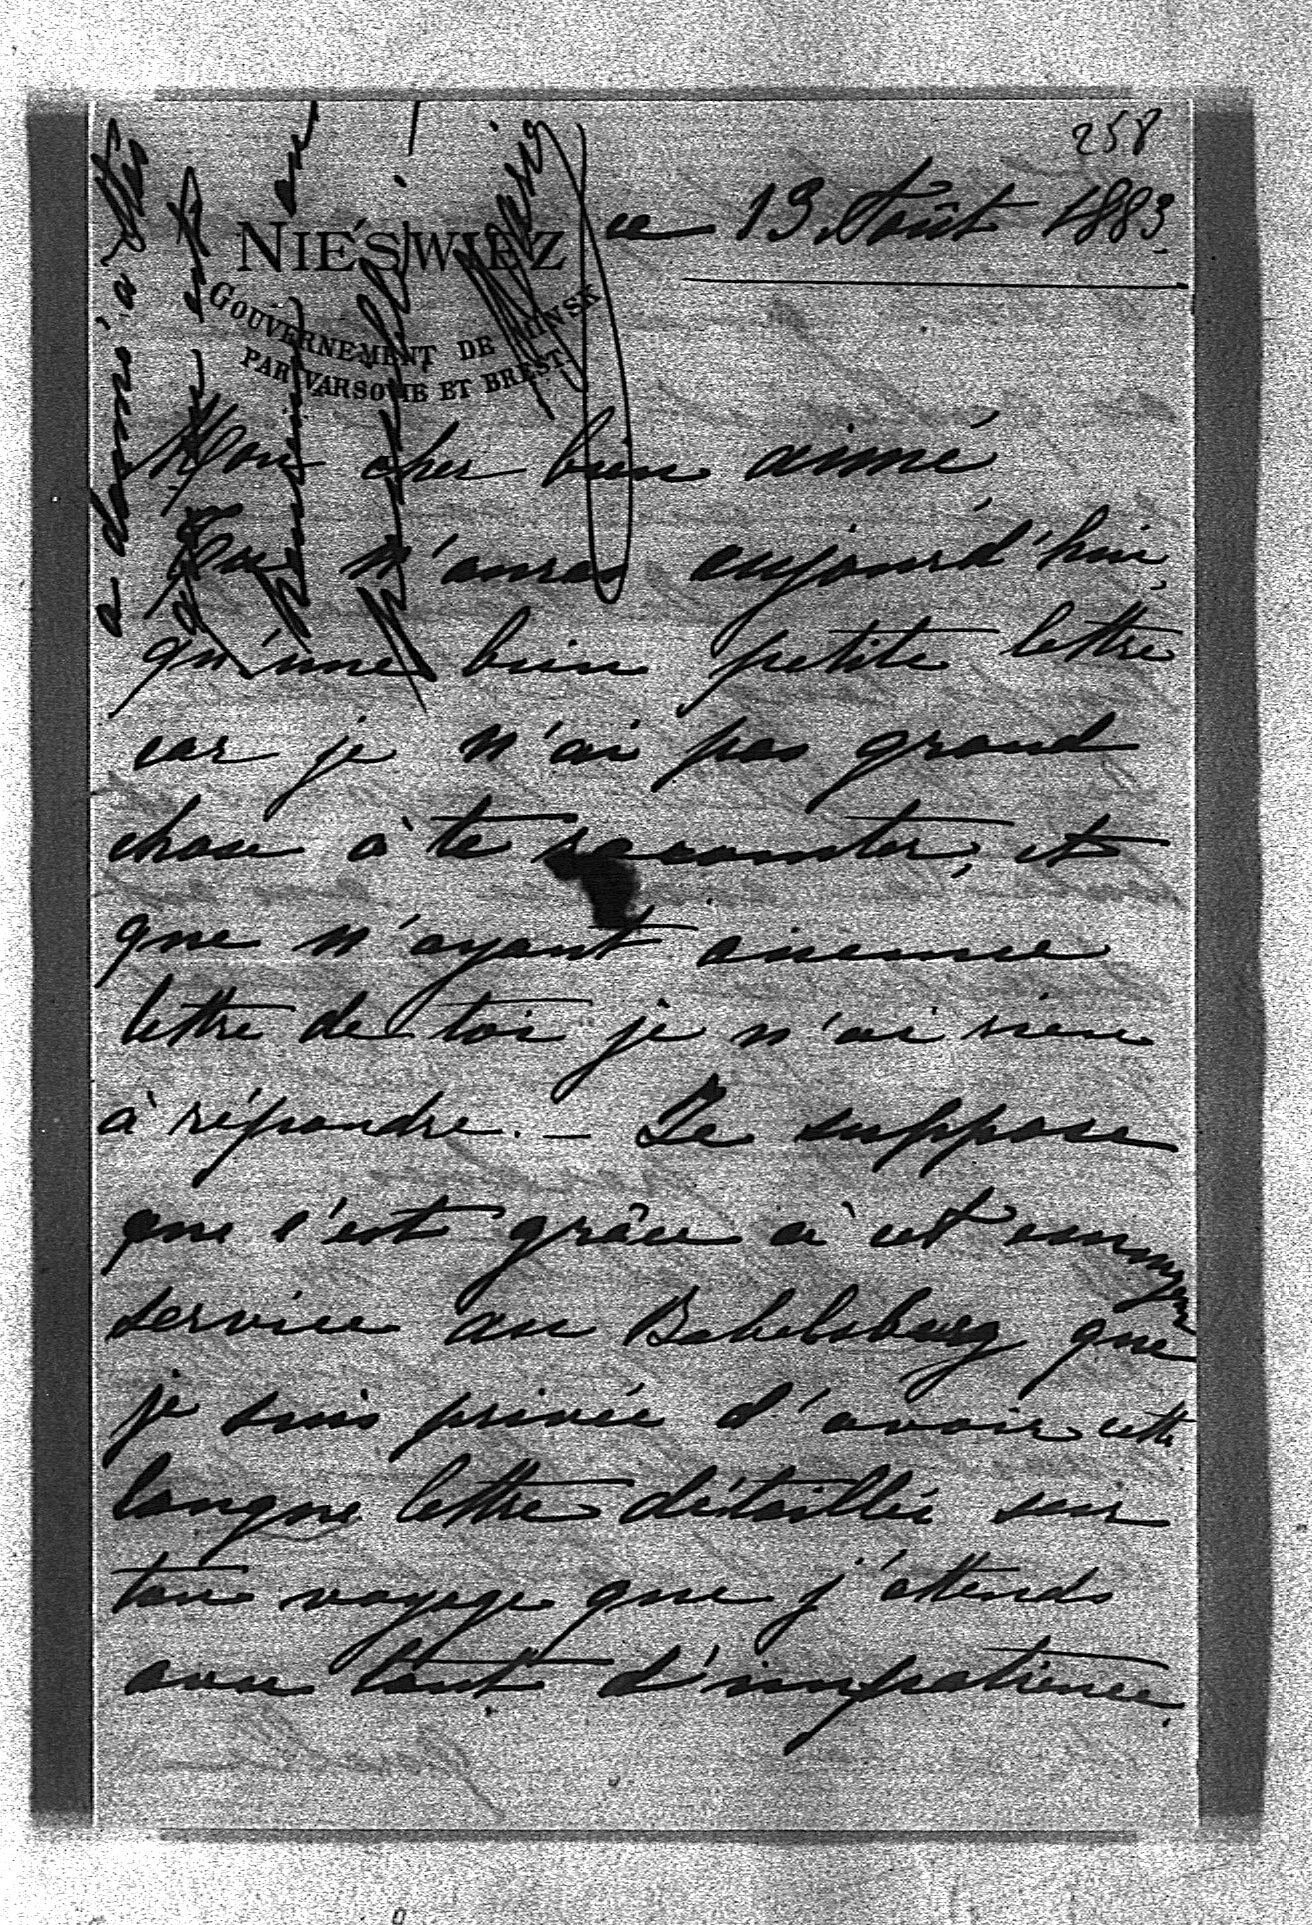 258
NIEŚWIEZ
GOUVERNEMENT DE MINSK
PAR VARSOVIE ET BREST
ce 13 Août 1883.
Mon cher bien aimé
Tu n'auras aujourd'hui
qu'une bien petite lettre
car je n'ai pas grand
chose à te raconter, et
que n'ayant aucune
lettre de toi je n'ai rien
à répondre. – Je suppose
que c'est grâce à cet
service au Babelsberg que
je suis privée d'avoir cette
longue lettre détaillée sur
ton voyage que j'attends
avec tant d'impatience.